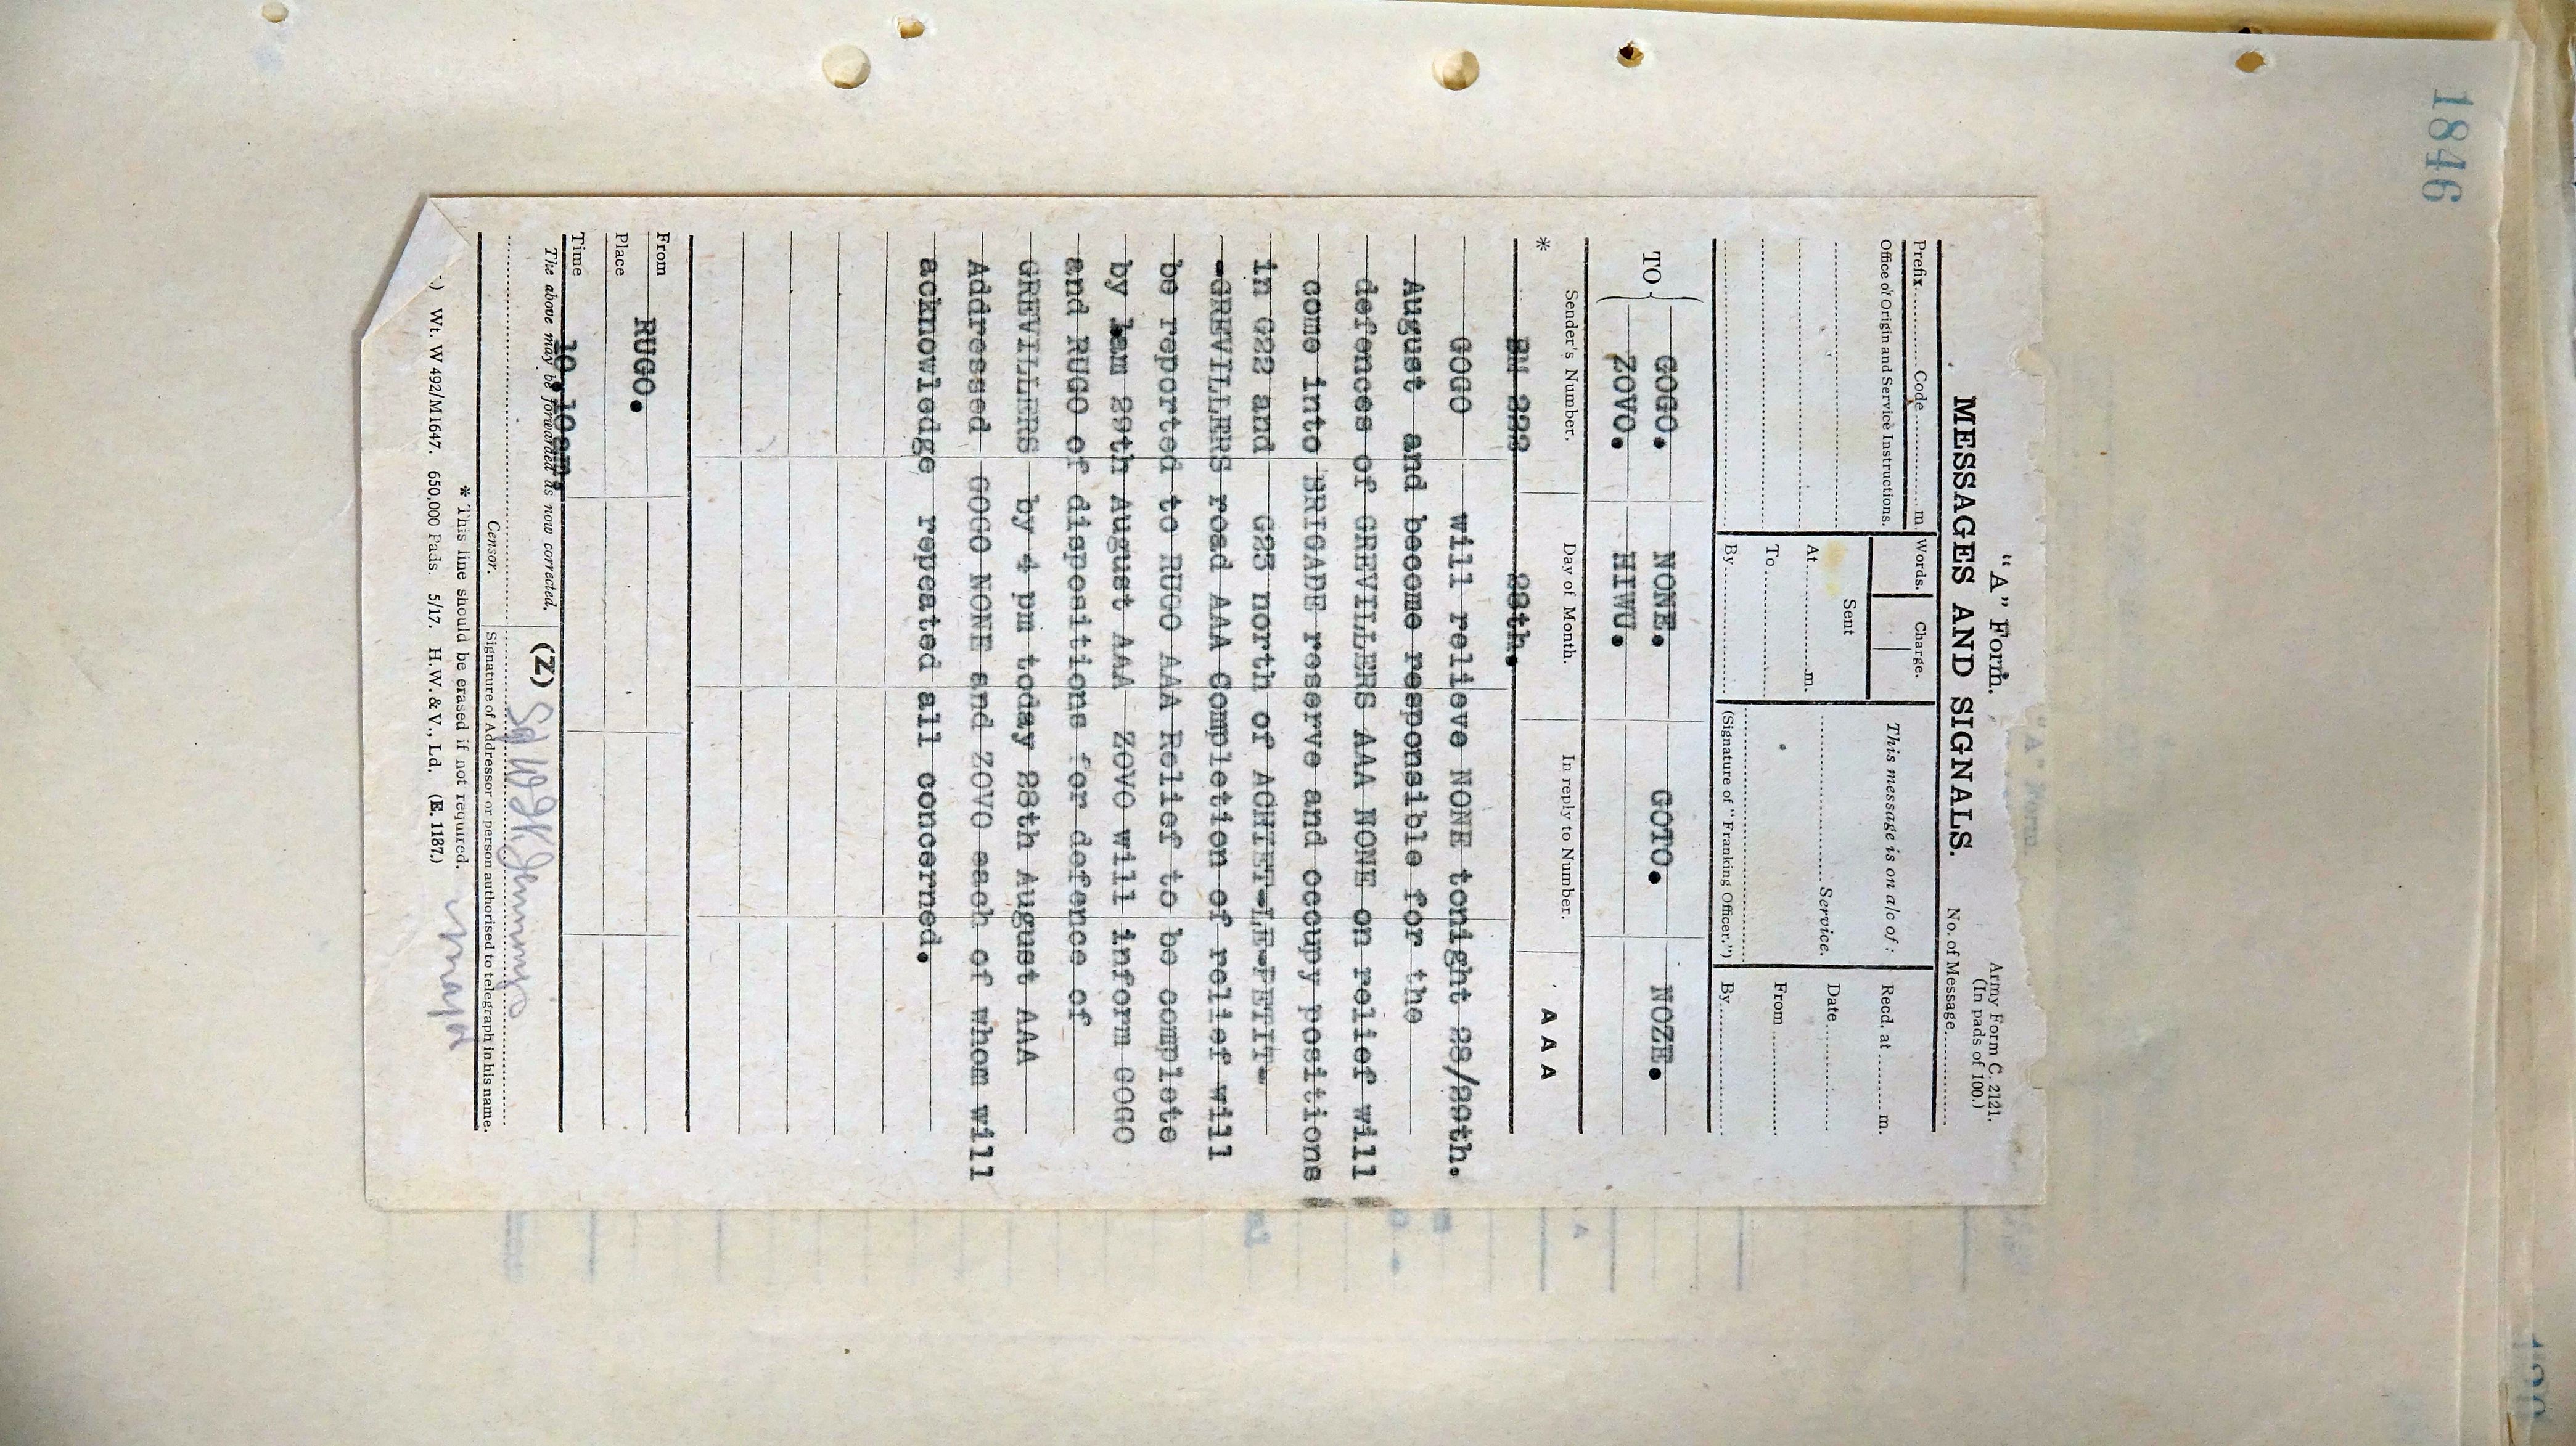 1846
"A" Form.
Army Form C. 2121.
(In pads of 100.)
MESSAGES AND SIGNALS.
No. of Message
Prefix Code m
Words. Charge.
This message is on a/c of :
Recd. at m.
Office of Origin and Service Instructions.
Sent
Service.
Date
At m.
To
From
By
(Signature of "Franking Officer.")
By
TO
GOGO. NONE. GOTO. NOZE.
ZOVO. HIWU.
Sender's Number. Day of Month. In reply to Number. A A A
*
BM 222 28th.
GOGO will relieve NONE tonight 28/29th.
August and become responsible for the
defences of GREVILLERS AAA NONE on relief will
come into BRIGADE reserve and occupy positions
in G22 and G23 north of ACHIET-LE-PETIT-
-GREVILLERS road AAA Completion of relief will
be reported to RUGO AAA Relief to be complete
by am 29th August AAA ZOVO will inform GOGO
and RUGO of dispositions for defence of
GREVILLERS by 4 pm today 28th August AAA
Addressed GOGO NONE and ZOVO each of whom will
acknowledge repeated all concerned.
From RUGO.
Place
Time 10.10am.
The above may be forwarded as now corrected. (Z)
Sd W J K Jennings
Censor. Signature of Addressor or person authorised to telegraph in his name.
* This line should be erased if not required.
Major
.) Wt. W 492/M1647. 650,000 Pads. 5/17. H.W. & V., Ld. (E. 1187.)